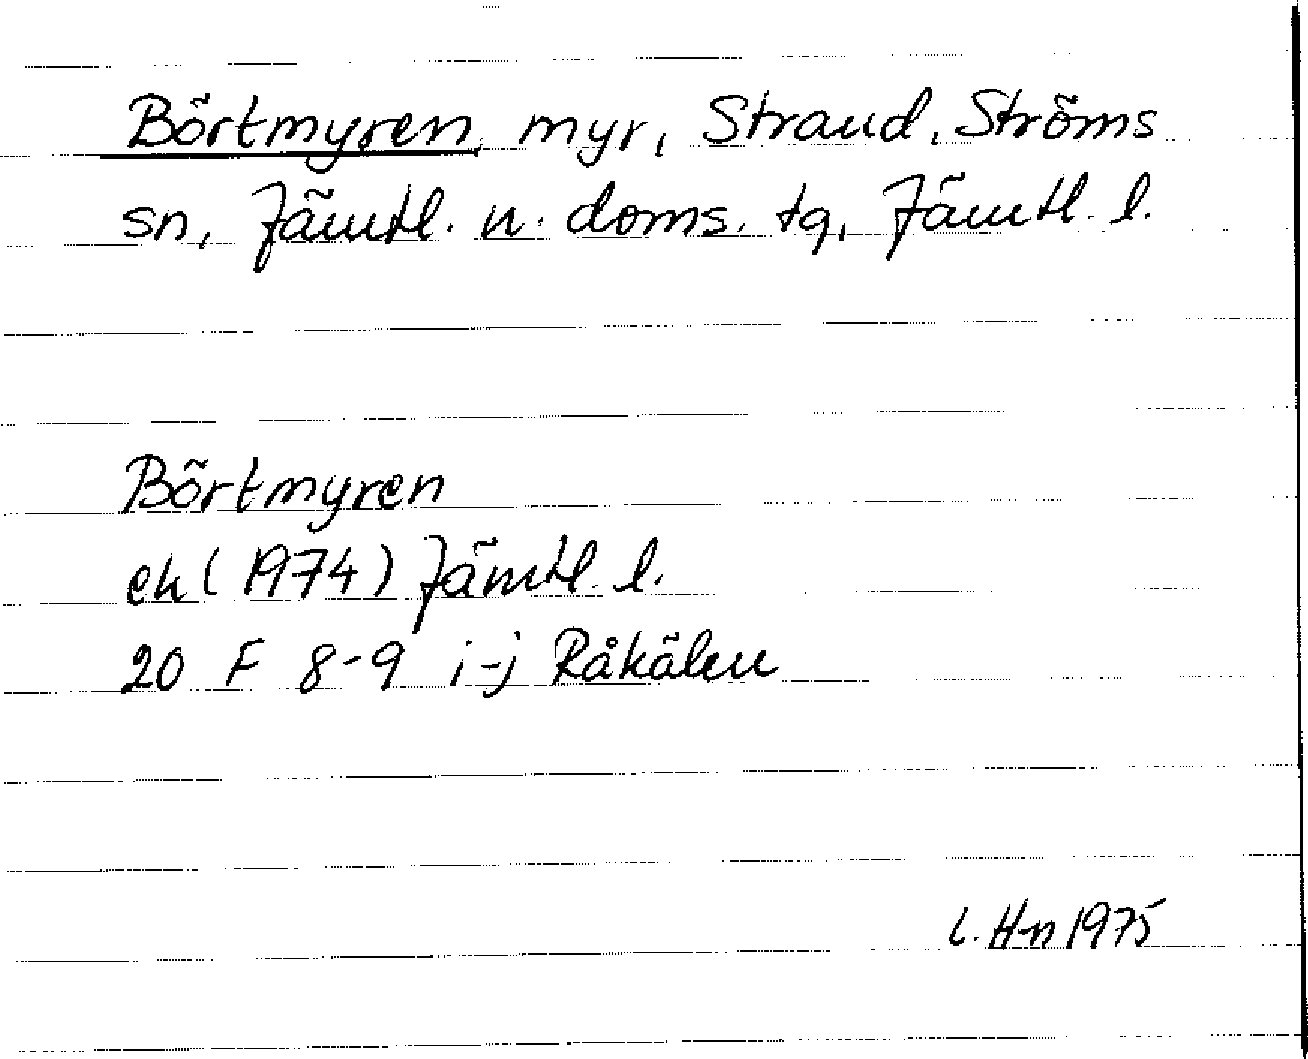 Börtmyren, myr, Strand, Ströms
sn, Jämtl. n. doms. tg, Jämtl. l.
Börtmyren
ek (1974) Jämtl. l.
20 F 8-9 i-j Råkälen
L. Hn 1975